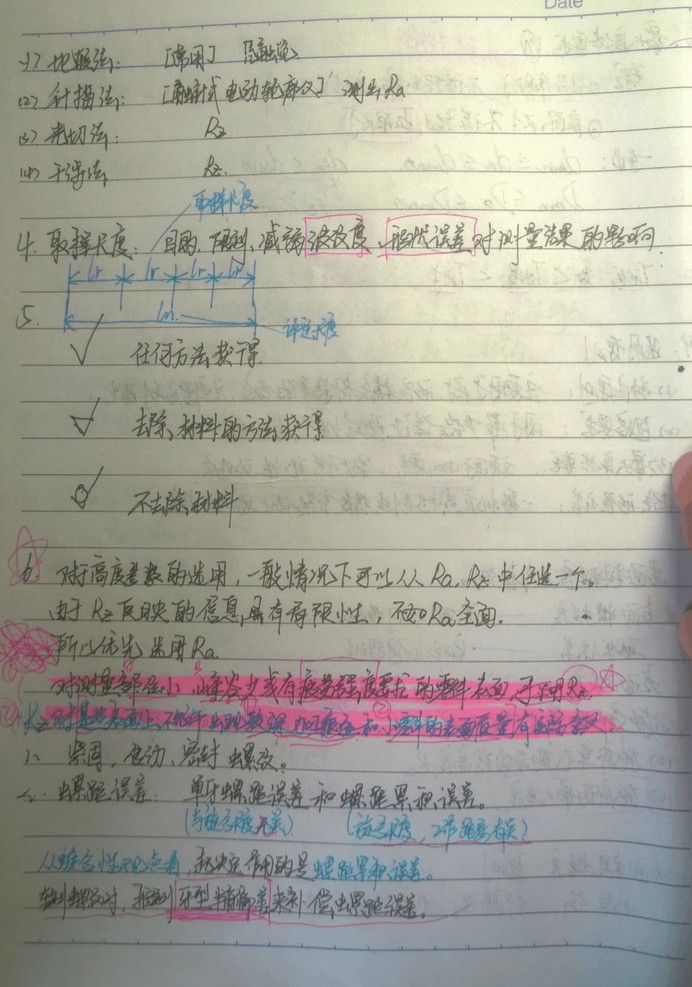 Date
(1) 比较法: [常用] [车间]
(2) 针描法: [触针式电动轮廓仪] 测出Ra
(3) 光切法: Rz
(4) 干涉法 Rz.
取样长度
4. 取样长度: 目的: 限制、减弱波纹度、形状误差对测量结果的影响.
lr lr lr lr
5. ln 评定长度
任何方法获得
去除材料的方法获得
不去除材料
6. 对于高度参数的选用,一般情况下可以从Ra、Rz中任选一个。
由于Rz反映的信息具有局限性,不如Ra全面.
所以优先选用Ra.
对测量部位小、峰谷少或有疲劳强度要求的零件表面,可选用Rz.
Rz对某些表面上不允许出现较深加工痕迹和小零件的表面质量有实际意义
1、紧固、传动、密封螺纹。
2、螺距误差: 单个螺距误差和螺距累积误差。
(与旋合长度无关) (旋合长度, 有关)
从旋合性观点看,起决定作用的是螺距累积误差。
车削螺纹时, 牙型精确度来补偿螺距误差。